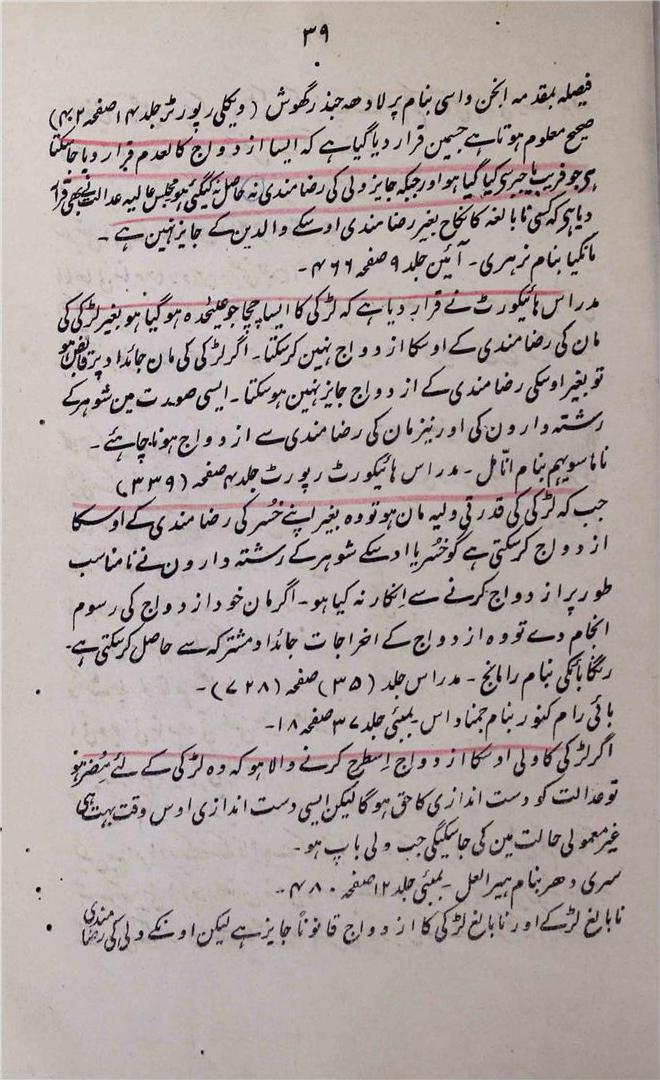 ۳۹
فیصلہ بمقدمہ انجن واسی بنام پرلادھہ چندر گھوش (ویکلی رپورٹر جلد ۱۴ صفحہ ۴۰۲)
صحیح معلوم ہوتا ہے جسمین قرار دیا گیا ہے کہ ایسا ازدواج کالعدم قرار دیا جاسکتا
ہی جو فریب یا جبر سی کیا گیا ہو اور جبکہ جایز ولی کی رضامندی نہ حاصل کیگئی ہو مجلس عالیہ عدالت نے بھی قرار
دیا ہی کہ کسی نابالغہ کا نکاح بغیر رضامندی اوسکے والدین کے جایز نہین ہے ۔
مانکیا بنام نرہری ۔ آئین جلد ۹ صفحہ ۴۶۶ ۔
مدراس ہائیکورٹ نے قرار دیا ہے کہ لڑکی کا ایسا چچا جو علیحدہ ہوگیا ہو بغیر لڑکی کی
مان کی رضامندی کے اوسکا ازدواج نہین کرسکتا ۔ اگر لڑکی کی مان جائداد پر قابض ہو
تو بغیر اوسکی رضامندی کے ازدواج جایز نہین ہوسکتا ۔ ایسی صورت مین شوہر کے
رشتہ دارون کی اور نیز مان کی رضامندی سے ازدواج ہونا چاہئے ۔
بنام انّامل ۔ مدراس ہائیکورٹ رپورٹ جلد ۴ صفحہ (۳۳۹)
جب کہ لڑکی کی قدرتی ولیہ مان ہو تو وہ بغیر اپنے خُسر کی رضامندی کے اوسکا
ازدواج کرسکتی ہے گو خُسر یا اوسکے شوہر کے رشتہ دارون نے نامناسب
طور پر ازدواج کرنے سے اِنکار نہ کیا ہو ۔ اگر مان خود ازدواج کی رسوم
انجام دے تو وہ ازدواج کے اخراجات جائداد مشترکہ سے حاصل کرسکتی ہے ۔
رنگانائکی بنام رامانج ۔ مدراس جلد (۳۵) صفحہ (۷۲۸) ۔
بائی رام کنور بنام جمناداس ۔ بمبئی جلد ۳۷ صفحہ ۱۸ ۔
اگر لڑکی کا ولی اوسکا ازدواج اِسطرح کرنے والا ہو کہ وہ لڑکی کے لئے مُضر ہو
تو عدالت کو دست اندازی کا حق ہوگا لیکن ایسی دست اندازی اوس وقت بہت ہی
غیر معمولی حالت مین کی جاسکیگی جب ولی باپ ہو ۔
سری دھر بنام ہیرالعل ۔ بمبئی جلد ۱۲ صفحہ ۴۸۰ ۔
نابالغ لڑکے اور نابالغ لڑکی کا ازدواج قانوناً جایز ہے لیکن اونکے ولی کی رضامندی